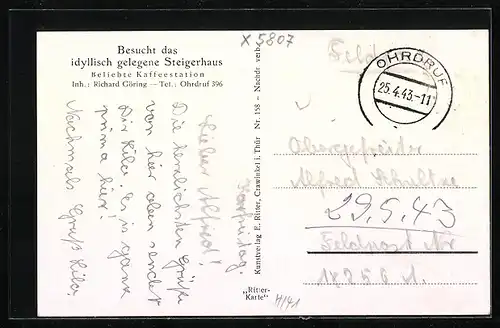 Besucht das
idyllisch gelegene Steigerhaus
Beliebte Kaffeestation
Inh.: Richard Göring — Tel.: Ohrdruf 396
X 5807
Feldpost
OHRDRUF
25.4.43.-11
Karfreitag.
Lieber Alfred!
Die herzlichsten Grüße
von hier oben sendet
Dir Hila. Es is ganz
prima hier.
Nochmals Gruß Hila.
Kunstverlag E. Ritter, Crawinkel i. Thür Nr. 158 — Nachdr. verb.
„Ritter-
Karte"
H/41
Obergefreiter
Alfred Schultze
29.5.43
Feldpost Nr
18258 A.